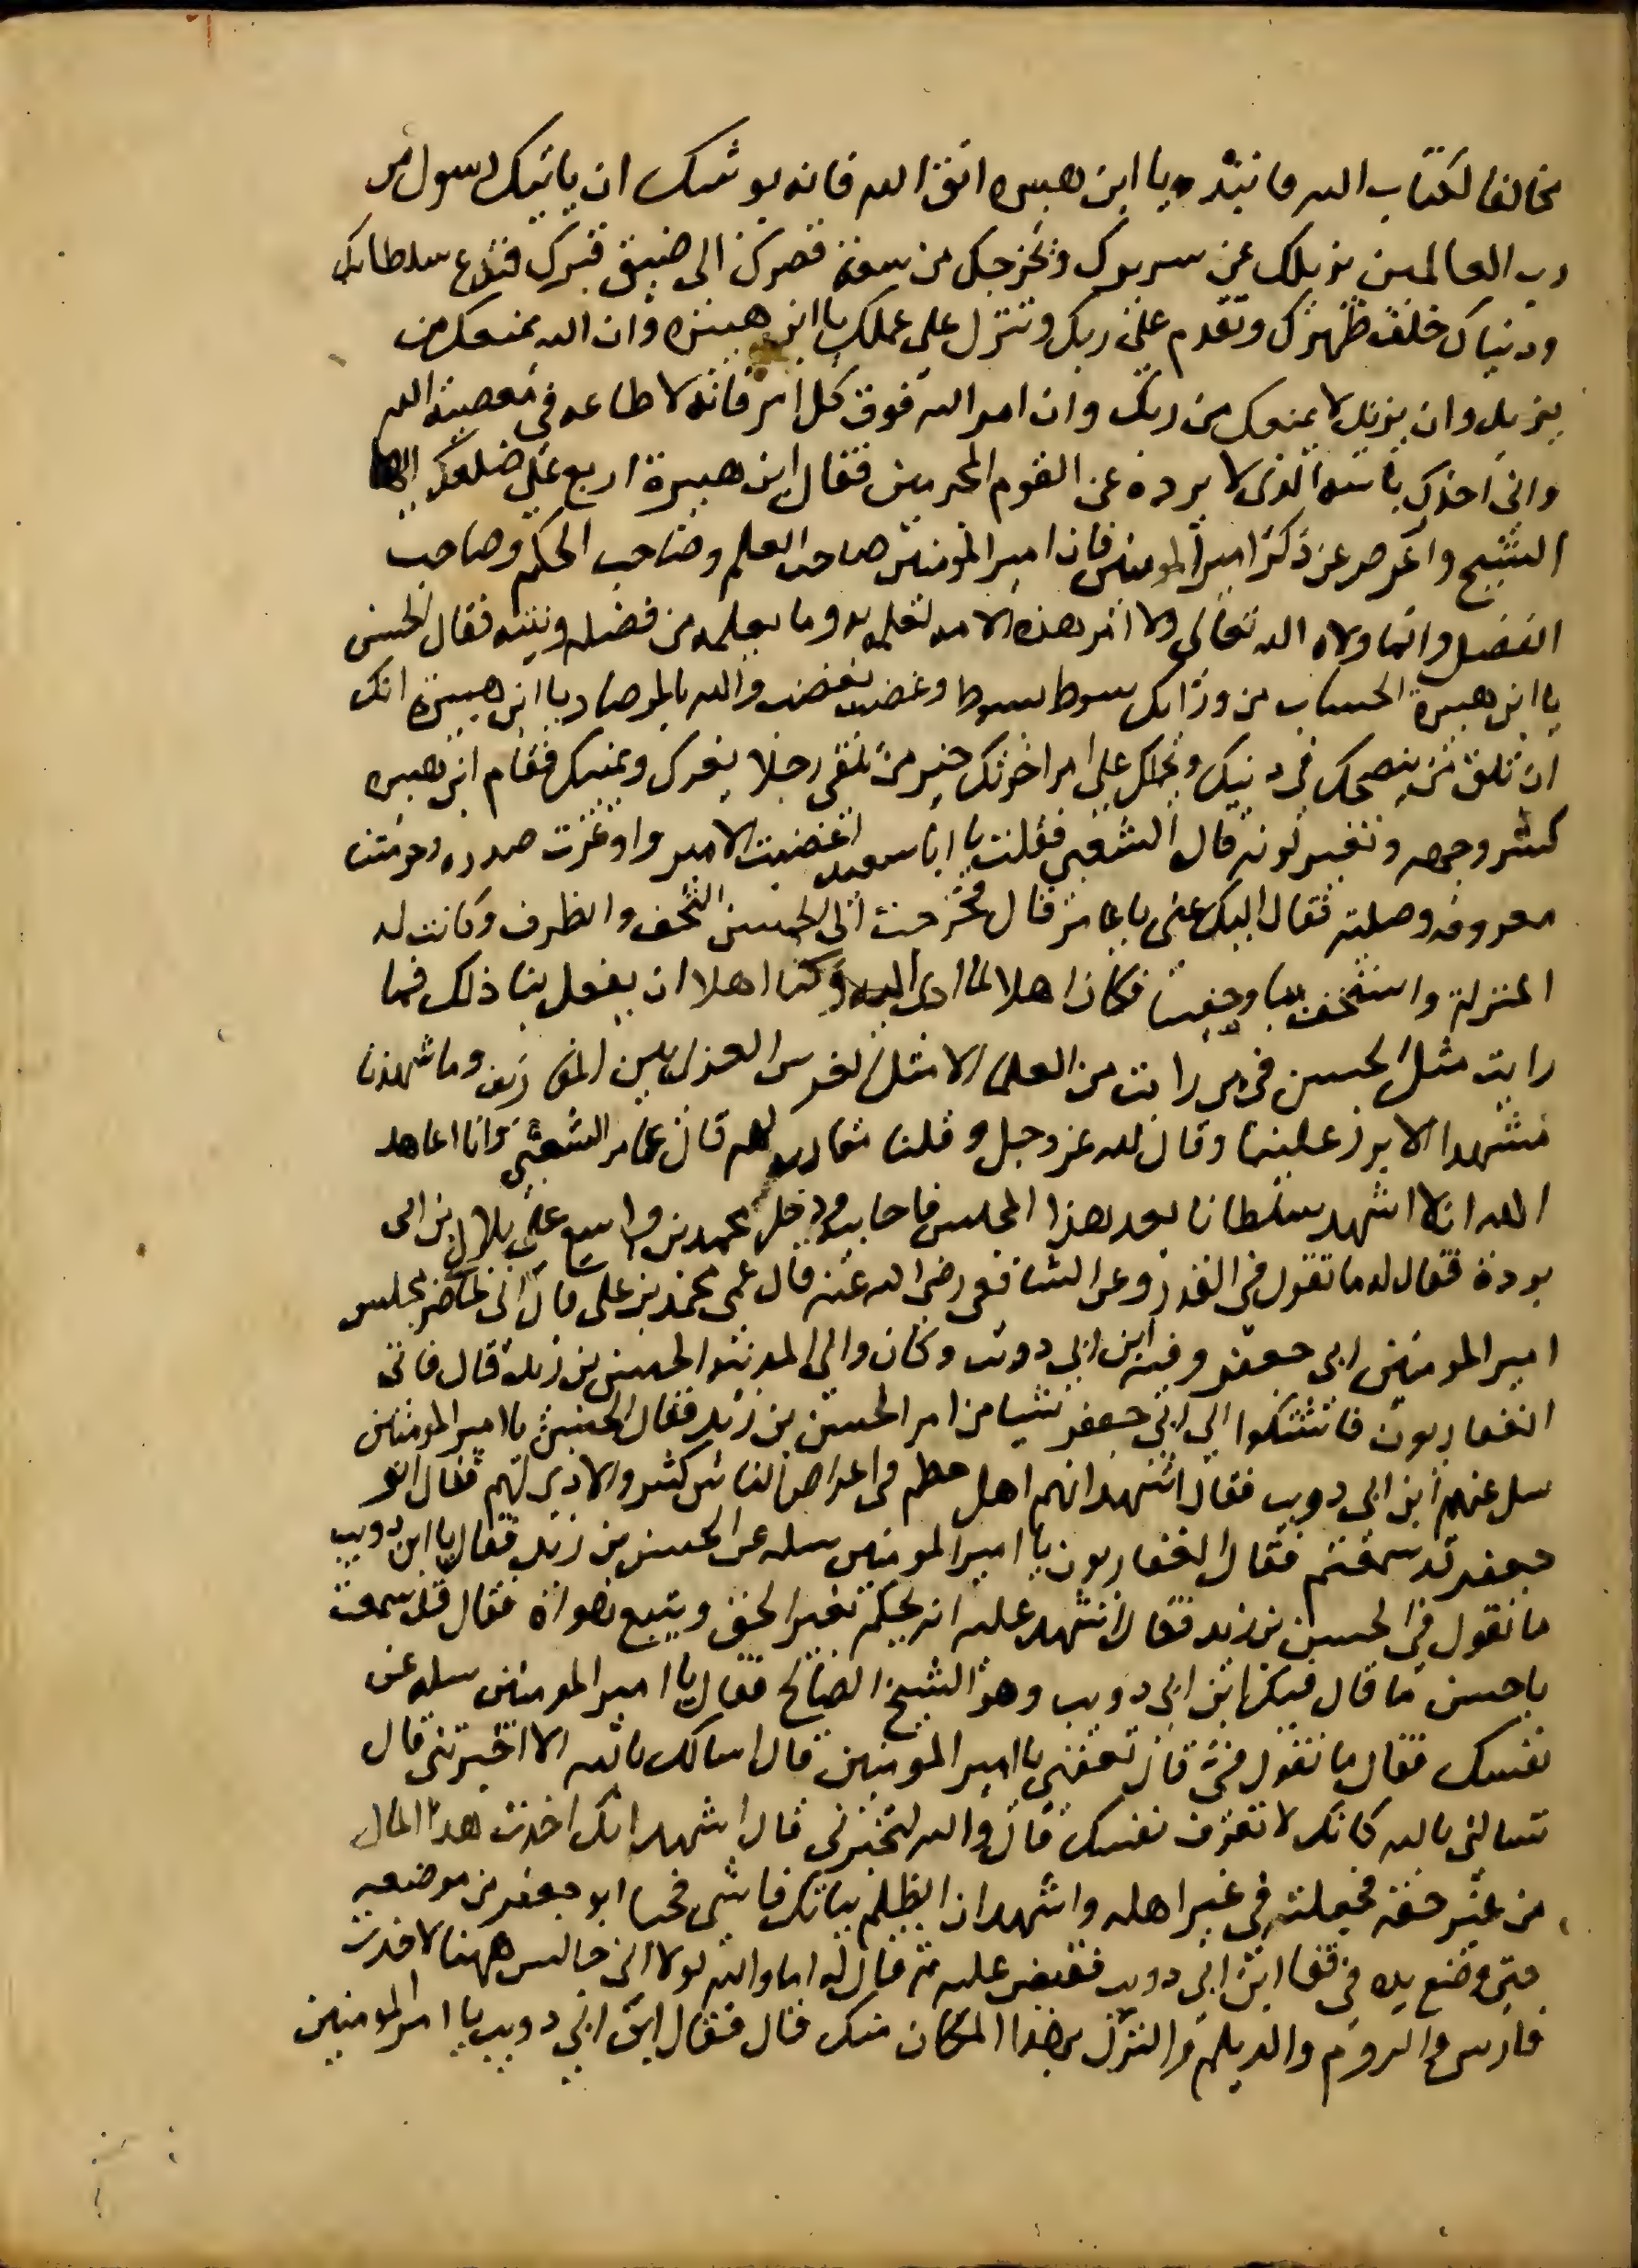 مخالفا لكتاب الله فانبذه يا ابن هبيره اتق الله فانه يوشك ان ياتيك رسول من
رب العالمين يزيلك عن سريرك ويخرجك من سعة قصرك الى ضيق قبرك فتدع سلطانك
ودنياك خلف ظهرك وتقدم على ربك وتنزل على عملك يا ابن هبيره وان الله يمنعك من
يزيد وان يزيد لا يمنعك من ربك وان امر الله فوق كل امر فانه لا طاعه في معصية الله
واني احذرك باسه الذي لا يرده عن القوم المجرمين فقال ابن هبيرة اربع على ضلعك ايها
الشيخ واعرض عن ذكر امير المومنين فان امير المومنين صاحب العلم وصاحب الحكم وصاحب
الفضل وانما ولاه الله تعالى ولا امر هذه الامه لعلمه به وما يعلمه من فضله ونيته فقال الحسن
يا ابن هبيرة الحساب من ورائك سوط بسوط وغضب بغضب والله بالمرصاد يا ابن هبيرة انك
ان تلق من ينصحك في دينك ويحملك على امر اخرتك خير من تلقى رجلا يغرك ويمنيك فقام ابن هبيره
كشر وجهه وتغير لونه قال الشعبي فقلت يا ابا سعيد اغضبت الامير واوغرت صدره وحرمتنا
معروفه وصلته فقال اليك عني يا عامر قال فخرجت الى الحسن التحف والظرف وكانت له
المنزلة واستخف بنا وجفينا فكان اهلا لما ادي اليه وكنا اهلا ان يفعل بنا ذلك فما
رايت مثل الحسن فيمن رايت من العلما الا مثل الفرس العربي بين المقارف وما شهدنا
مشهدا الا برز علينا وقال لله عز وجل وقلنا مقاربة لهم قال عامر الشعبي وانا اعاهد
الله ان لا اشهد سلطانا بعد هذا المجلس فاحابيه ودخل محمد بن واسع على بلال بن ابى
بردة فقال له ما تقول في القدر وعن الشافعى رضى الله عنه قال عمى محمد بن على قال انى لحاضر مجلس
امير المومنين ابى جعفر وفيه ابن ابي دويب وكان والى المدينه الحسن بن زيد قال فاتى
الغفاريون فاشتكوا الى ابي جعفر شيا من امر الحسن بن زيد فقال الحسن يا امير المومنين
سل عنهم ابن ابي دويب فقال اشهد انهم اهل حطم فى اعراض الناس كثير والاذى لهم فقال ابو
جعفر قد سمعتم فقال الغفاريون يا امير المومنين سله عن الحسن بن زيد فقال يا ابن دويب
ما تقول في الحسن بن زيد فقال اشهد عليه انه يحكم بغير الحق ويتبع هواه فقال قد سمعت
يا حسن ما قال فيك ابن ابى دويب وهو الشيخ الصالح فقال يا امير المومنين سله عن
نفسك فقال ما تقول في قال تعفني يا امير المومنين قال اسالك بالله الا اخبرتني قال
تسالني بالله كانك لا تعرف نفسك قال والله لتخبرني قال اشهد انك اخذت هذا المال
من غير حقه فجعلته في غير اهله واشهد ان الظلم ببابك فاشي فجا ابو جعفر من موضعه
حتى وضع يده في قفا ابن ابي دويب فقبض عليه ثم قال له اما والله لولا اني جالس ههنا لاخذت
فارس والروم والديلم والترك بهذا المكان منك قال فقال ابن ابي دويب يا امير المومنين